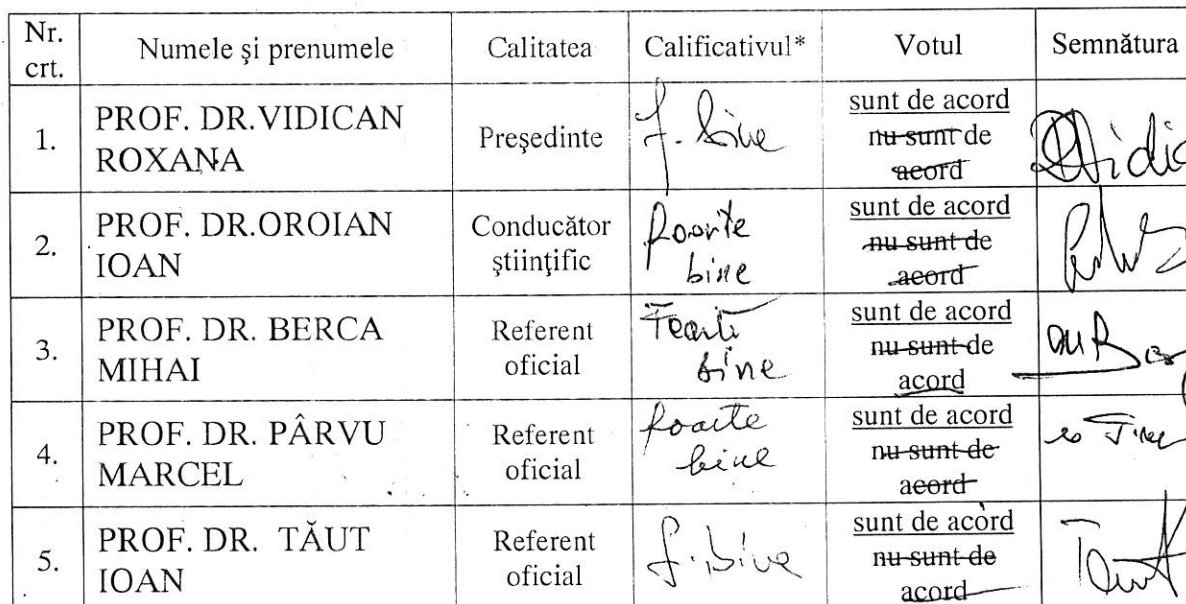 Nr. crt. Numele şi prenumele Calitatea Calificativul* Votul Semnătura
1. PROF. DR.VIDICAN ROXANA Preşedinte f. bine sunt de acord nu sunt de acord
2. PROF. DR.OROIAN IOAN Conducător ştiinţific foarte bine sunt de acord nu sunt de acord
3. PROF. DR. BERCA MIHAI Referent oficial Foarte bine sunt de acord nu sunt de acord
4. PROF. DR. PÂRVU MARCEL Referent oficial foarte bine sunt de acord nu sunt de acord
5. PROF. DR. TĂUT IOAN Referent oficial f. bine sunt de acord nu sunt de acord